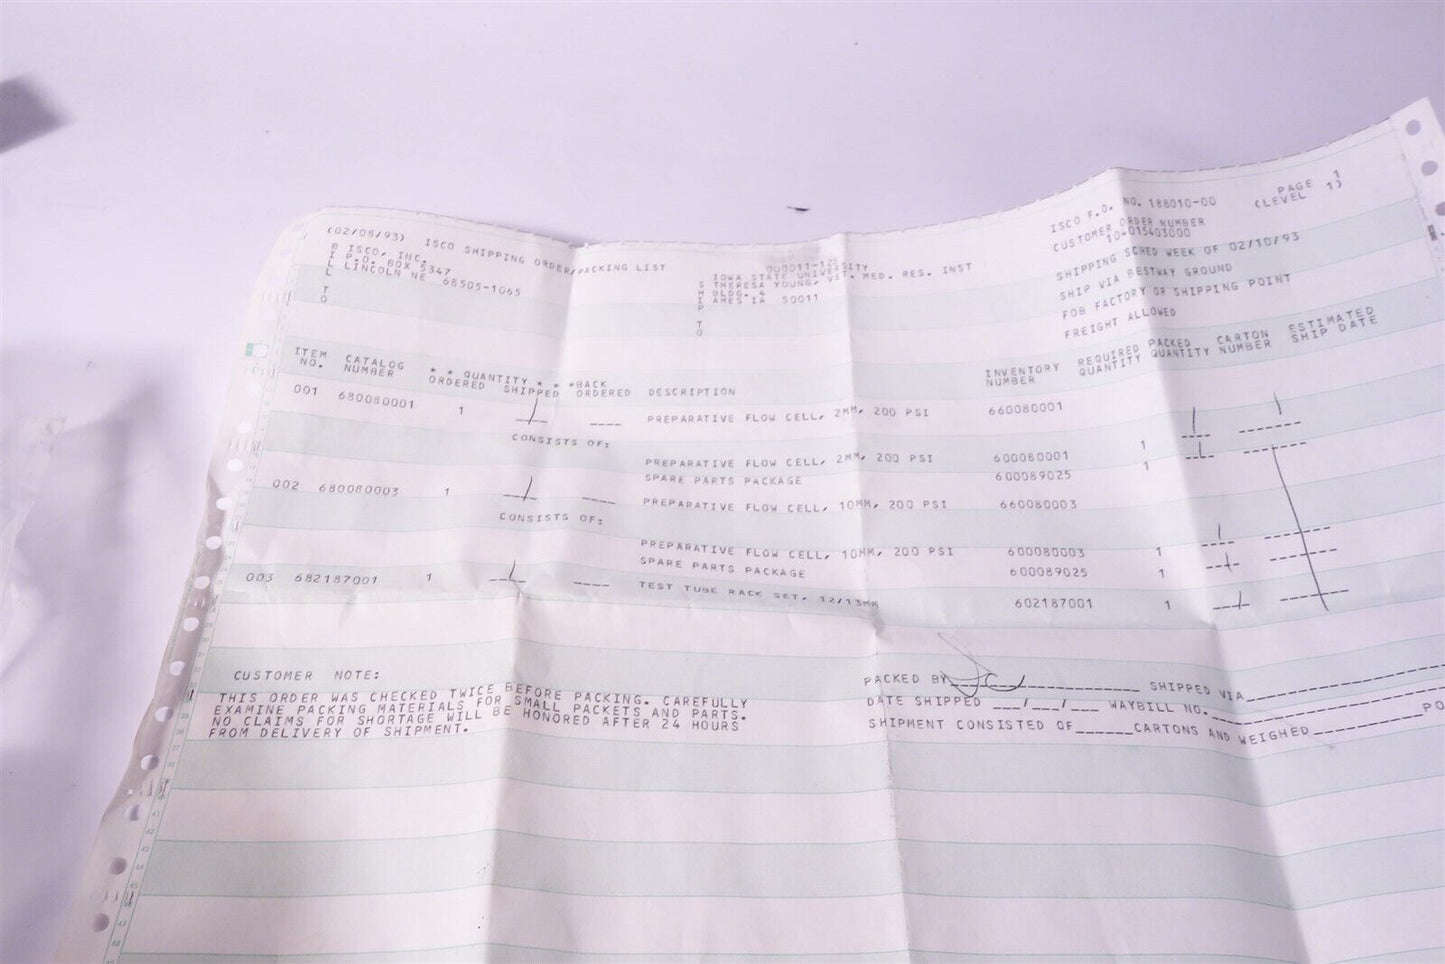 PAGE 1
(02/08/93) ISCO SHIPPING ORDER/PACKING LIST ISCO F.O. NO. 188010-00 (LEVEL 1)
BILL TO
ISCO, INC.
P.O. BOX 5347
LINCOLN NE 68505-1065
SHIP TO
IOWA STATE UNIVERSITY
THERESA YOUNG, VET. MED. RES. INST
BLDG. 4
AMES IA 50011
CUSTOMER ORDER NUMBER
SHIPPING SCHED WEEK OF 02/10/93
SHIP VIA BESTWAY GROUND
FOB FACTORY OR SHIPPING POINT
FREIGHT ALLOWED
ITEM CATALOG * * QUANTITY * * *BACK INVENTORY REQUIRED PACKED CARTON ESTIMATED
NO. NUMBER ORDERED SHIPPED ORDERED DESCRIPTION NUMBER QUANTITY QUANTITY NUMBER SHIP DATE
001 680080001 1 1 ____ PREPARATIVE FLOW CELL, 2MM, 200 PSI 660080001
CONSISTS OF:
PREPARATIVE FLOW CELL, 2MM, 200 PSI 600080001 1
SPARE PARTS PACKAGE 600089025 1
002 680080003 1 1 ____ PREPARATIVE FLOW CELL, 10MM, 200 PSI 660080003
CONSISTS OF:
PREPARATIVE FLOW CELL, 10MM, 200 PSI 600080003 1
SPARE PARTS PACKAGE 600089025 1
003 682187001 1 1 ____ TEST TUBE RACK SET, 12/13MM 602187001 1
CUSTOMER NOTE:
THIS ORDER WAS CHECKED TWICE BEFORE PACKING. CAREFULLY
EXAMINE PACKING MATERIALS FOR SMALL PACKETS AND PARTS.
NO CLAIMS FOR SHORTAGE WILL BE HONORED AFTER 24 HOURS
FROM DELIVERY OF SHIPMENT.
PACKED BY SHIPPED VIA
DATE SHIPPED ___/___/___ WAYBILL NO.
SHIPMENT CONSISTED OF______CARTONS AND WEIGHED___________PO